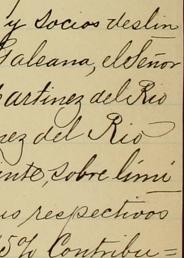 y socios deslin
Galeana, el Señor
artinez del Rio
nez del Rio
nte, sobre limi
us respectivos
5% Contribu=